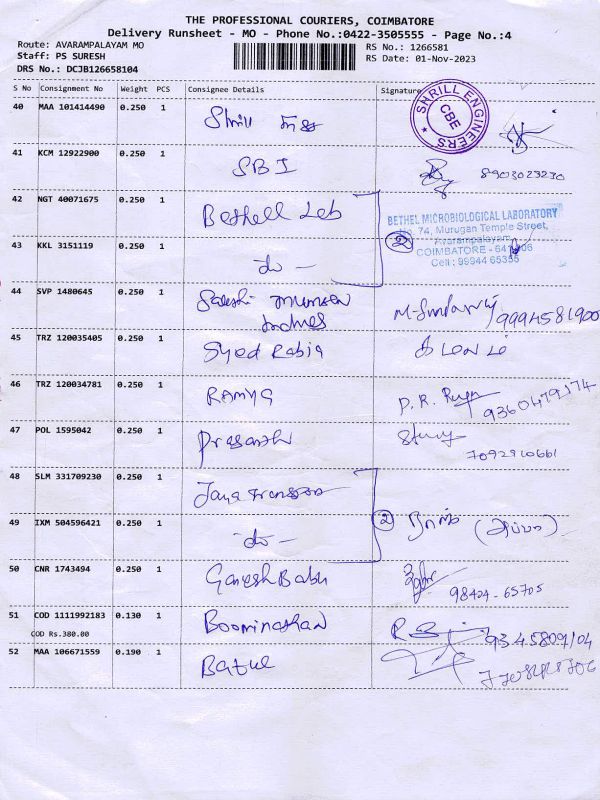 THE PROFESSIONAL COURIERS, COIMBATORE
Delivery Runsheet - MO - Phone No.:0422-3505555 - Page No.:4
Route: AVARAMPALAYAM MO
RS No.: 1266581
Staff: PS SURESH
RS Date: 01-Nov-2023
DRS No.: DCJB126658104
S No Consignment No Weight PCS Consignee Details Signature
40 MAA 101414490 0.250 1 Shrill
SHRILL ENGINEERS
CBE
41 KCM 12922900 0.250 1 SBI 8903023230
42 NGT 40071675 0.250 1 Bethell Lab
BETHEL MICROBIOLOGICAL LABORATORY
No. 74, Murugan Temple Street,
Avarampalayam
COIMBATORE - 641 006
Cell : 99944 65355
2
43 KKL 3151119 0.250 1 do -
44 SVP 1480645 0.250 1
9994581900
45 TRZ 120035405 0.250 1 Syed Rabia
46 TRZ 120034781 0.250 1 RAMYA P. R. 9360479174
47 POL 1595042 0.250 1 Prasanth
7092910661
48 SLM 331709230 0.250 1 Jaya
49 IXM 504596421 0.250 1 do - 2 (அப்பா)
50 CNR 1743494 0.250 1 Ganesh Babu
98424-65705
51 COD 1111992183 0.130 1 Boominathan
COD Rs.380.00
52 MAA 106671559 0.190 1